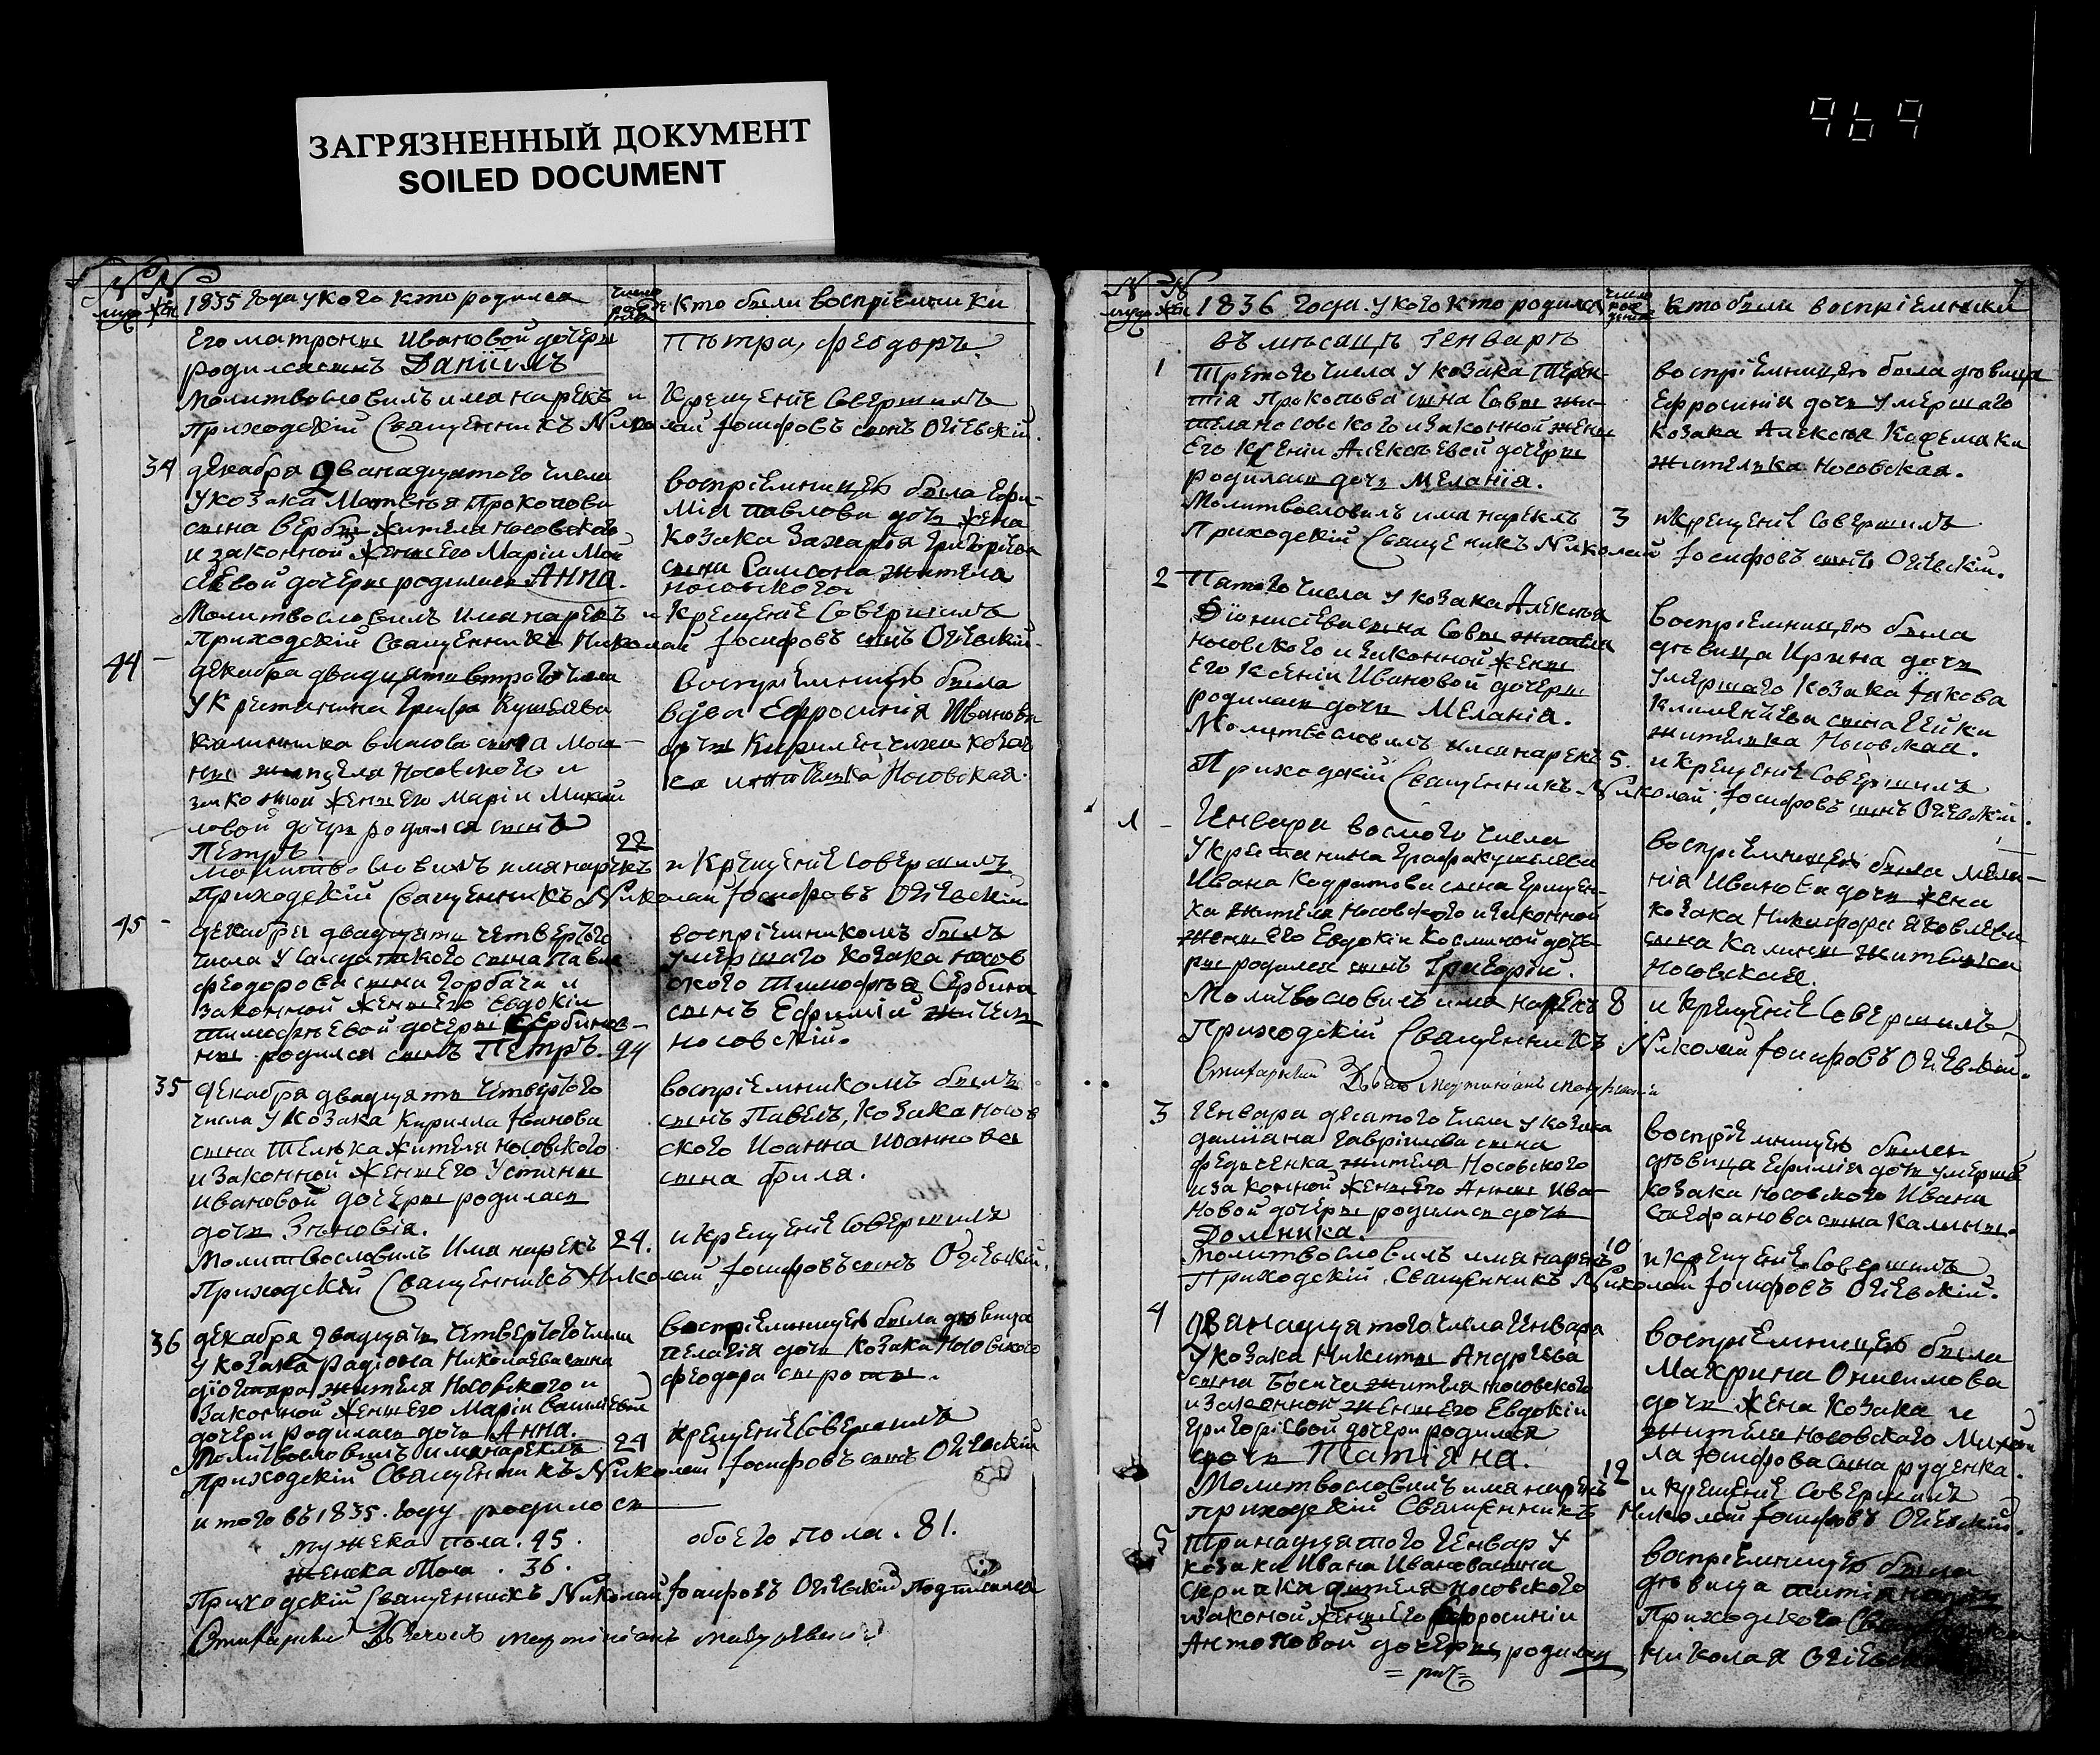 ЗАГРЯЗНЕННЫЙ ДОКУМЕНТ
SOILED DOCUMENT
969
№ №
муж жен 1835 года у кого кто родился число рожде кто были восприемники
Его матроны Ивановой дочеры
родился сынъ Даніилъ
молитвословилъ имя нарекъ и
Приходскій Священникъ Николай Іосифовъ сынъ Огіевскій.
Петра, феодоръ.
Крещеніе Совершилъ
34 декабра Дванадцатого числа
у козака Матвѣя Прокопова
сына Вербы жителя Носовского
и законной жены Его Маріи Мои
сѣевой дочеры родилась Анна.
Молитвословилъ имя нарекъ и
Приходскій Священникъ Николай Іосифовъ сынъ Огіевскій
воспріемницею была Ефи-
мія павлова дочь жена
козака Захарія Григоріева
сына Самсона жителя
носовского
крещеніе Совершилъ
44 декабра двадцать второго числа
У крестянина Графа Кушелева
калинника власова сына Мои-
жителя Носовского и
законной жены Его Маріи Михаи
ловой дочеры родился сынъ
Петръ 22
Молитвословилъ имя нарекъ
Приходскій Священникъ Николай Іосифовъ Огіевскій
Воспріемницею была
вдова Ефросинія Иванова
дочь козач
ка жителька Носовская.
и Крещеніе Совершилъ
45 декабра двадцать четвертого
числа у Салдатского сына Павла
феодорова сына Горбача и
законной жены Его Евдокіи
тимофѣевой дочеры Сербинов-
ны родился сынъ Петръ. 24
воспріемникомъ былъ
умершаго козака носов
ского Тимофѣя Сербина
сынъ Ефимій житель
носовскій.
35 декабра двадцать четвертого
числа у козака Кирилла Іванова
сына Телѣка жителя носовского
и законной жены Его Устины
ивановой дочеры родилась
дочь Зѣновія.
Молитвословилъ имя нарекъ 24.
Приходскій Священникъ Николай Іосифовъ сынъ Огіевскій.
воспріемникомъ былъ
сынъ Павелъ, козака носов
ского Иоанна Иоаннова
сына филя.
и крещеніе совершилъ
36 декабра двадцать четвертого числа
у козака радіона Николаева сына
жителя Носовского и
законной жены Его Маріи Василіевой
дочери родилась дочь Анна.
Молитвословилъ имя нарекъ 24
Приходскій Священникъ Николай Іосифовъ сынъ Огіевскій
воспріемницею была дѣвица
пелагія дочь козака Носовского
феодора сыроты.
крещеніе Совершилъ
итого въ 1835. году родилось
мужеска пола. 45.
женска пола. 36.
обоего пола. 81.
Приходскій Священникъ Николай Іосифовъ Огіевскій подписался
7
№ №
муж жен 1836 года. у кого кто родился число рождения кто были воспріемники
въ мѣсацѣ Генварѣ
1 Третого числа у козака Терен-
тія Прокопова сына Савы жи-
теля носовского и законной жены
Его Ксеніи Алексѣевой дочеры
родилась дочь Меланія.
Молитвословилъ имя нарекъ 3
Приходскій Священникъ Николай Іосифовъ сынъ Огіевскій.
воспріемницею была дѣвица
Ефросинія дочь умершаго
козака Алексѣя
жителька носовская.
и крещеніе совершилъ
2 Пятого числа у козака Алексѣя
Діонисіева сына Савы жителя
носовского и законной жены
Его Ксеніи Ивановой дочеры
родилась дочь Меланія.
Молитвословилъ имя нарекъ 5.
Приходскій Священникъ Николай Іосифовъ сынъ Огіевскій.
воспріемницею была
дѣвица Ирина дочь
умершаго козака Іакова
Клименчева сына Гейки
жителька Носовская.
и крещеніе совершилъ
1 Генвара восмого числа
у крестянина Графа кушелева
Ивана Кодратова сына Грищен-
ка жителя Носовского и законной
жены Его Евдокіи Косминой доче-
ры родился сынъ Григорій.
Молитвословилъ имя нарекъ 8
Приходскій Священникъ Николай Іосифовъ Огіевскій.
воспріемницею была мела-
нія Иванова дочь жена
козака Никифора Яковлева
сына Калины жителька
Носовская.
и крещеніе Совершилъ
3 Генвара десятого числа у козака
даміяна Гавріилова сына
федченка жителя Носовского
и законной жены Его Анны Ива-
новой дочеры родилась дочь
Домника. 10
молитвословилъ имя нарекъ
Приходскій Священникъ Николай Іосифовъ Огіевскій.
воспріемницею была
дѣвица Ефимія дочь умерша
козака носовского Ивана
Стефанова сына Калины.
и крещеніе Совершилъ
4 Дванадцатого числа Генвара
у козака Никиты Андріева
сына Босача жителя носовского
и законной жены Его Евдокіи
Григоріевой дочери родилася
дочь Татіяна. 12
Молитвословилъ имя нарекъ
приходскій Священникъ Николай Іосифовъ Огіевскій.
воспріемницею была
Макрина Онисимова
дочь жена козака и
жителя носовского Михай
ла Іосифова сына руденка.
и крещеніе Совершилъ
5 Тринадцатого Генвар у
козака Ивана Иванова сына
Скрипки жителя носовского
и законой жены Его Ефросиніи
Антоновой дочеры, родилась
воспріемницею была
дѣвица татіяна дочь
Приходского Священника
Николая Огіевского